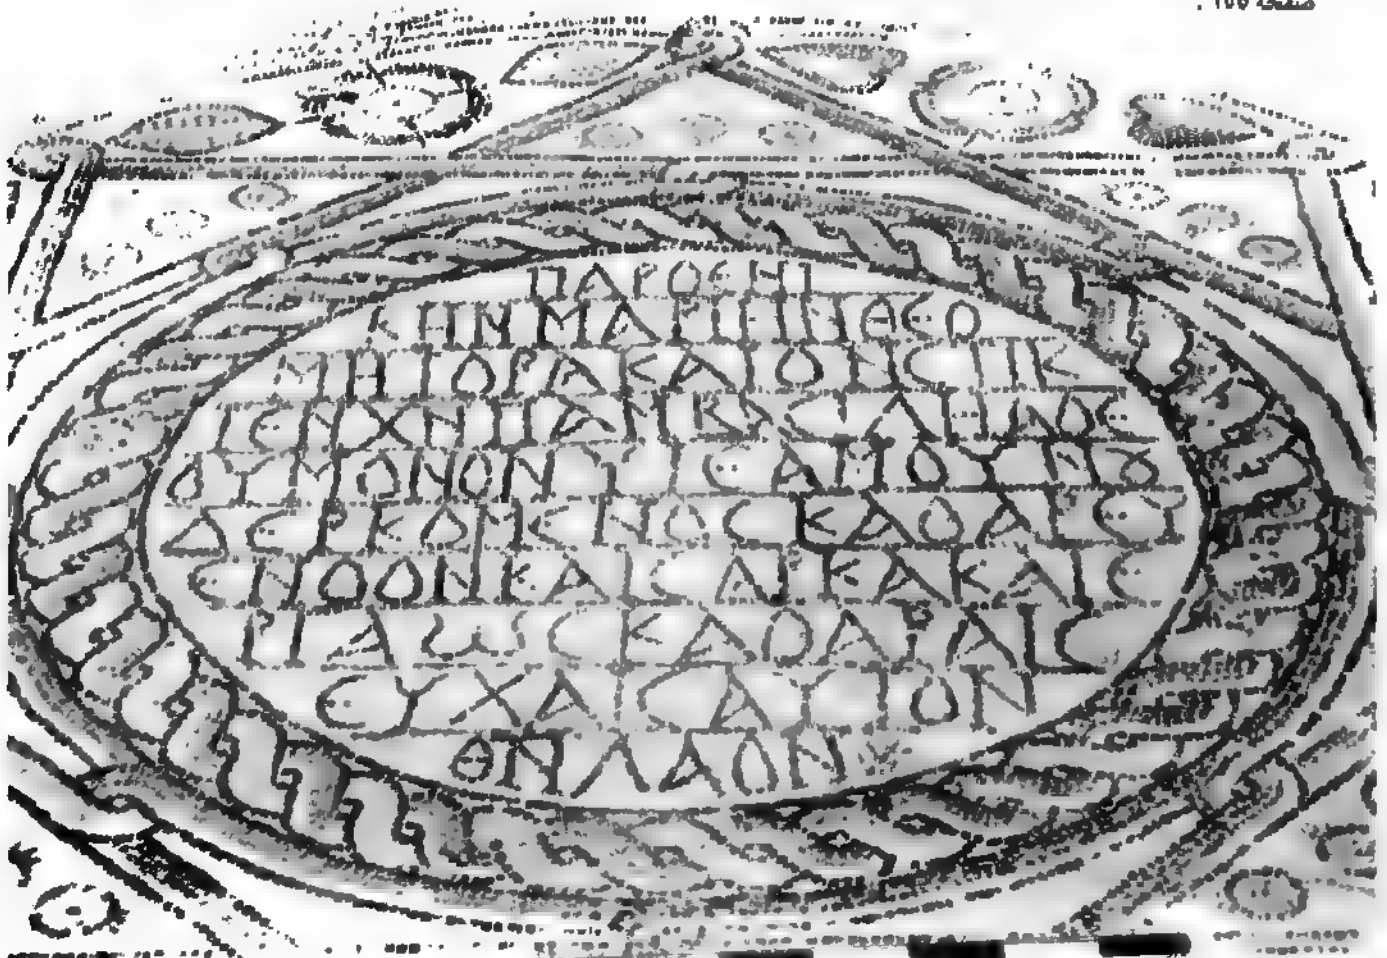 ΠΑΡΘΕΝΙ
ΚΗΝ ΜΑΡΙΗΝ ΘΕΟ
ΜΗΤΟΡΑ ΚΑΙ ΟΝ ΕΤΙΚ
ΤΕΝ ΧΝ ΠΑΜΒΑCΙΛΗΝ ΘΕ
ΟΥ ΜΟΝΟΝ ΥΙΕΑ ΜΟΥΝΟ
ΔΕΡΚΟΜΕΝΟC ΚΑΘΑΡΕΥ
Ε ΝΟΟΝ ΚΑΙ CΑΡΚΑ ΚΑΙ Ε
ΡΓΑ ΩC ΚΑΘΑΡΑΙC
ΕΥΧΑΙC ΑΥΤΟΝ
ΘΝ ΛΑΟΝ